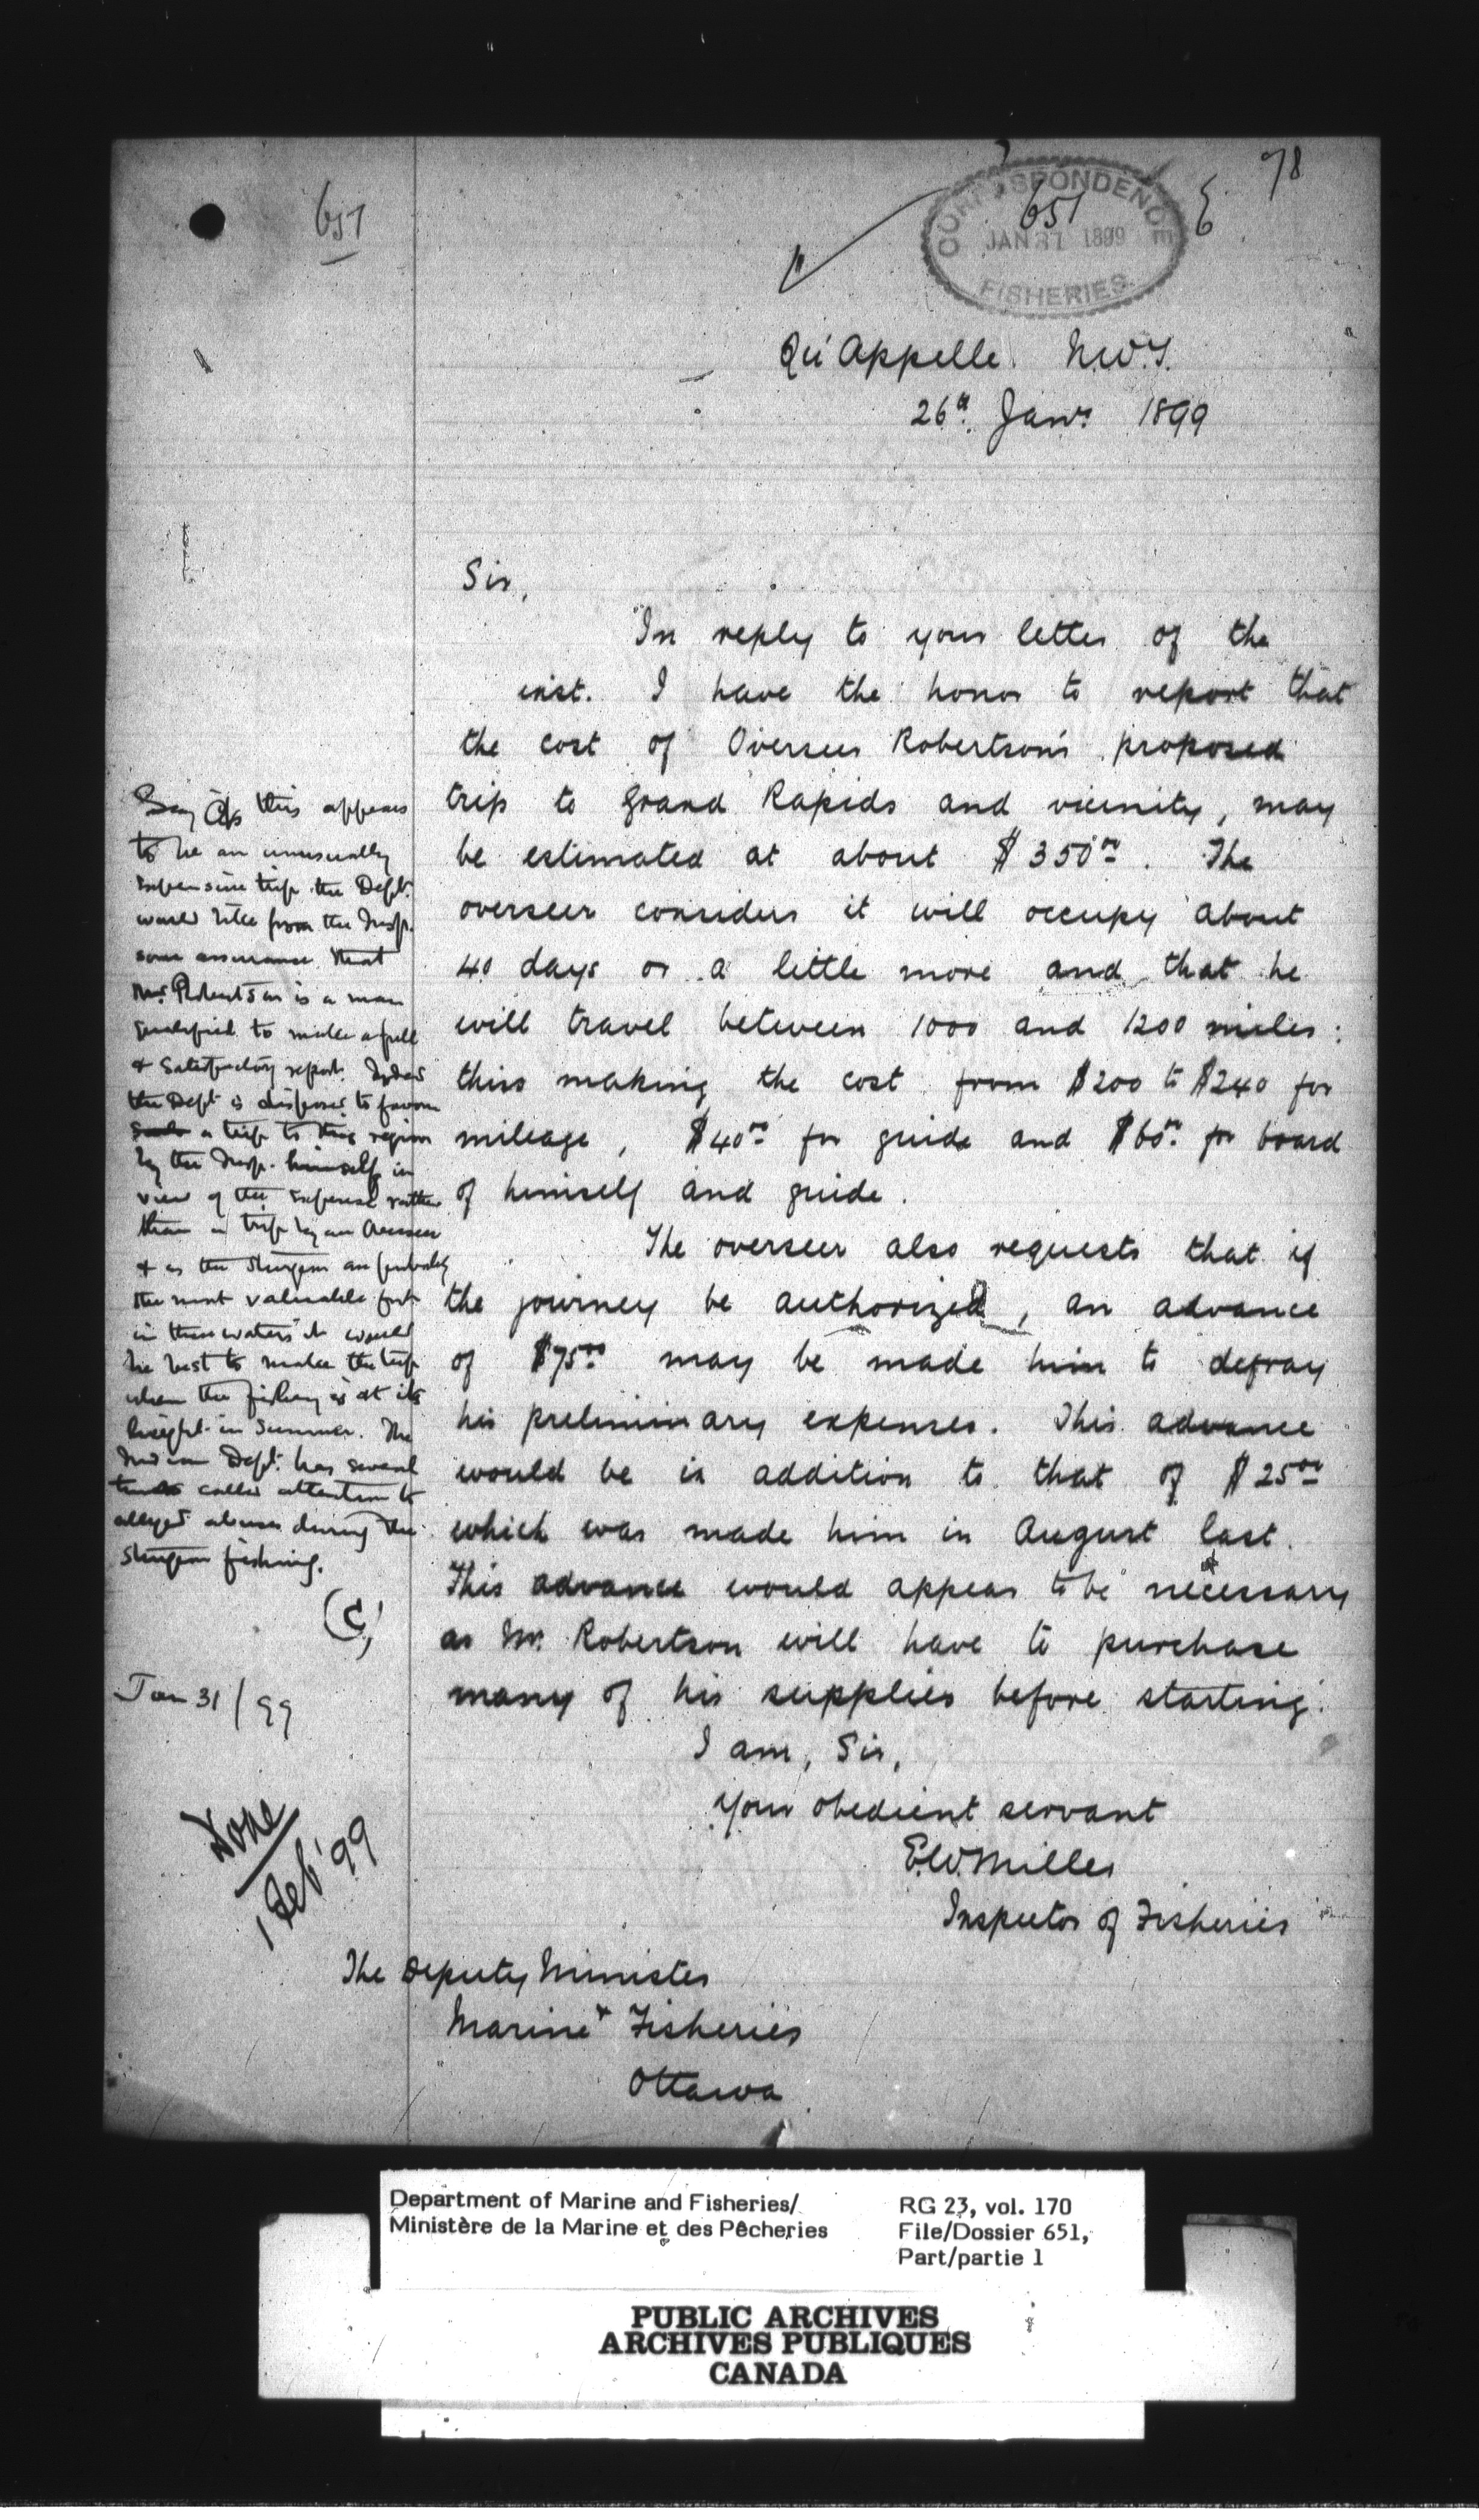 78
651
CORRESPONDENCE
651
JAN 31 1899
FISHERIES
Qu'Appelle. N.W.T.
26th Jany. 1899
Sir,
In reply to your letter of the
inst. I have the honor to report that
the cost of Overseer Robertson's proposed
trip to Grand Rapids and vicinity, may
be estimated at about $350.00. The
overseer considers it will occupy about
40 days or a little more and that he
will travel between 1000 and 1200 miles:
this making the cost from $200 to $240 for
mileage, $40.00 for guide and $60.00 for board
of himself and guide.
The overseer also requests that if
the journey be authorized, an advance
of $75.00 may be made him to defray
his preliminary expenses. This advance
would be in addition to that of $25.00
which was made him in August last.
This advance would appear to be necessary
as Mr. Robertson will have to purchase
many of his supplies before starting.
I am, Sir,
Your obedient servant
E.W. Miller
Inspector of Fisheries
The Deputy Minister
Marine & Fisheries
Ottawa
Say As this appears
to be an unusually
expensive trip the Dept.
would like from the Insp.
some assurance that
Mr. Robertson is a man
qualified to make a full
& satisfactory report. Indeed
the Dept is disposed to favour
such a trip to this region
by the Insp. himself in
view of the expense rather
than a trip by an Overseer
& as the Sturgeon are probably
the most valuable fish
in these waters it would
be best to make the trip
when the fishery is at its
height in Summer. The
Indian Dept. has several
times called attention to
alleged abuses during the
Sturgeon fishing.
(C)
Jan 31/99
Done
1 Feb '99
Department of Marine and Fisheries/
Ministère de la Marine et des Pêcheries
RG 23, vol. 170
File/Dossier 651,
Part/partie 1
PUBLIC ARCHIVES
ARCHIVES PUBLIQUES
CANADA